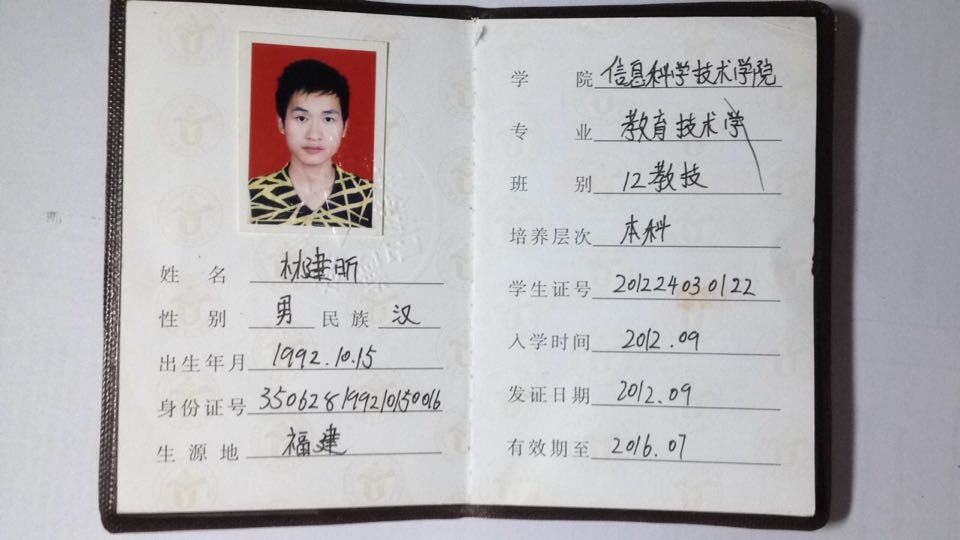 姓名 林建昕
性别 男 民族 汉
出生年月 1992.10.15
身份证号 350628199210150016
生源地 福建
学院 信息科学技术学院
专业 教育技术学
班别 12教技
培养层次 本科
学生证号 201224030122
入学时间 2012.09
发证日期 2012.09
有效期至 2016.07